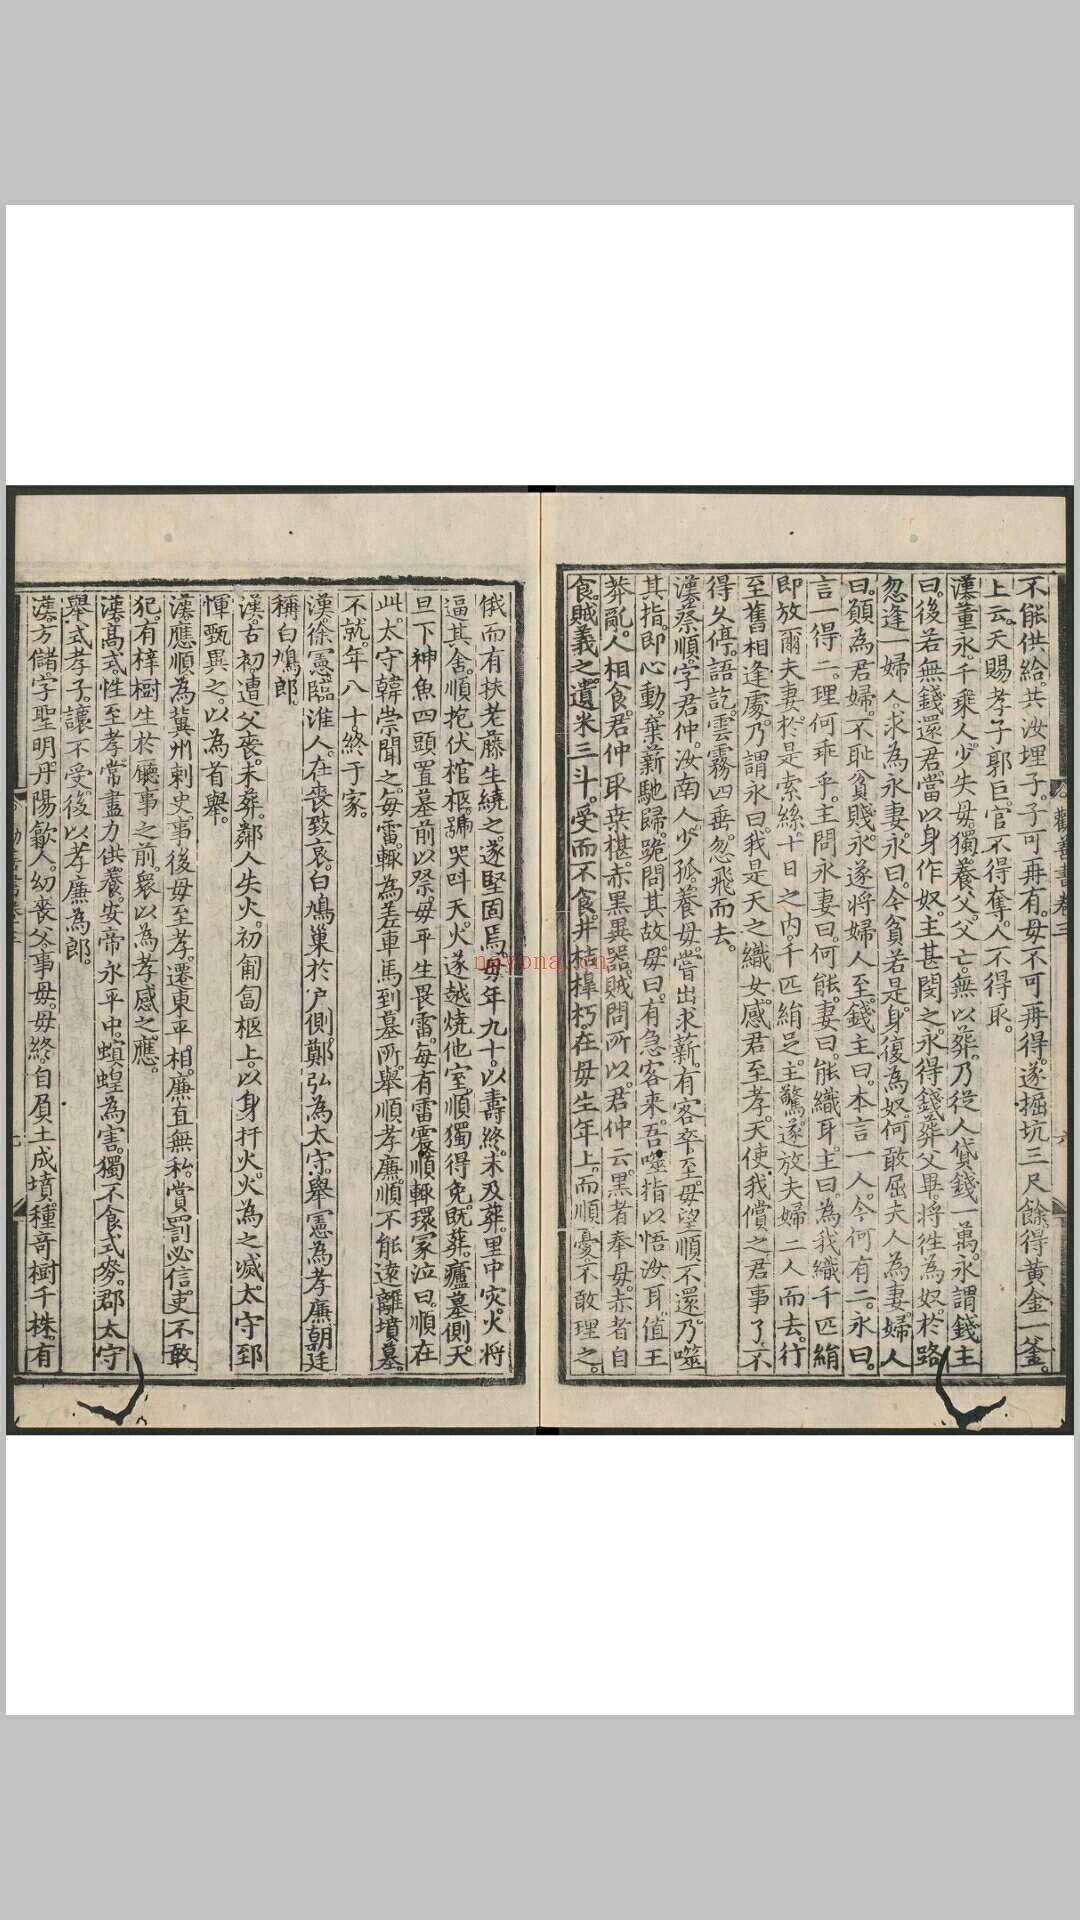 不能供給共汝埋子。子可再有。母不可再得。遂掘坑三尺餘得黃金一釜。
上云。天賜孝子郭巨。官不得奪。人不得取。
漢董永千乘人。少失母。獨養父。父亡。無以葬。乃從人貸錢一萬。永謂錢主
曰。後若無錢還君。當以身作奴。主甚閔之。永得錢葬父畢。將往為奴。於路
忽逢一婦人。求為永妻。永曰。今貧若是。身復為奴。何敢屈夫人為妻。婦人
曰。願為君婦。不恥貧賤。永遂將婦人至。錢主曰。本言一人。今何有二。永曰。
言一得二。理何乖乎。主問永妻曰。何能。妻曰。能織耳。主曰。為我織千匹絹
即放爾夫妻。於是索絲。十日之內。千匹絹足。主驚。遂放夫婦二人而去。行
至舊相逢處。乃謂永曰。我是天之織女。感君至孝。天使我償之。君事了。不
得久停。語訖。雲霧四垂。忽飛而去。
漢蔡順。字君仲。汝南人。少孤。養母。嘗出求薪。有客卒至。母望順不還。乃噬
其指。即心動。棄薪馳歸。跪問其故。母曰。有急客來。吾噬指以悟汝耳。值王
莽亂。人相食。君仲取桒椹。赤黑異器。賊問所以。君仲云。黑者奉母。赤者自
食。賊義之。遺米三斗。受而不食。井桔橰朽。在母生年上。而順憂不敢理之。
勸善書卷三
六
俄而有扶老藤生繞之。遂堅固焉。母年九十。以壽終。未及葬。里中灾。火將
逼其舍。順抱伏棺柩。號哭呌天。火遂越燒他室。順獨得免。旣葬。廬墓側。天
旦下神魚四頭。置墓前以祭。母平生畏雷。每有雷震。順輒環冢泣曰。順在
此。太守韓崇聞之。每雷。輒為差車馬到墓所。舉順孝廉。順不能遠離墳墓。
不就。年八十。終于家。
漢徐憲。臨淮人。在喪致哀。白鳩巢於户側。鄭弘為太守。舉憲為孝廉。朝廷
稱白鳩郎。
漢古初。遭父喪。未葬。鄰人失火。初匍匐柩上。以身扞火。火為之滅。太守郅
惲甄異之。以為首舉。
漢應順。為冀州刺史。事後母至孝。遷東平相。廉直無私。賞罰必信。吏不敢
犯。有梓樹生於廳事之前。衆以為孝感之應。
漢髙式。性至孝。常盡力供養。安帝永平中。螟蝗為害。獨不食式麥。郡太守
舉式孝子。讓不受。後以孝廉為郎。
漢方儲。字聖明。丹陽歙人。幼喪父。事母。母終。自負土成墳。種竒樹千株。有
nayona.cn